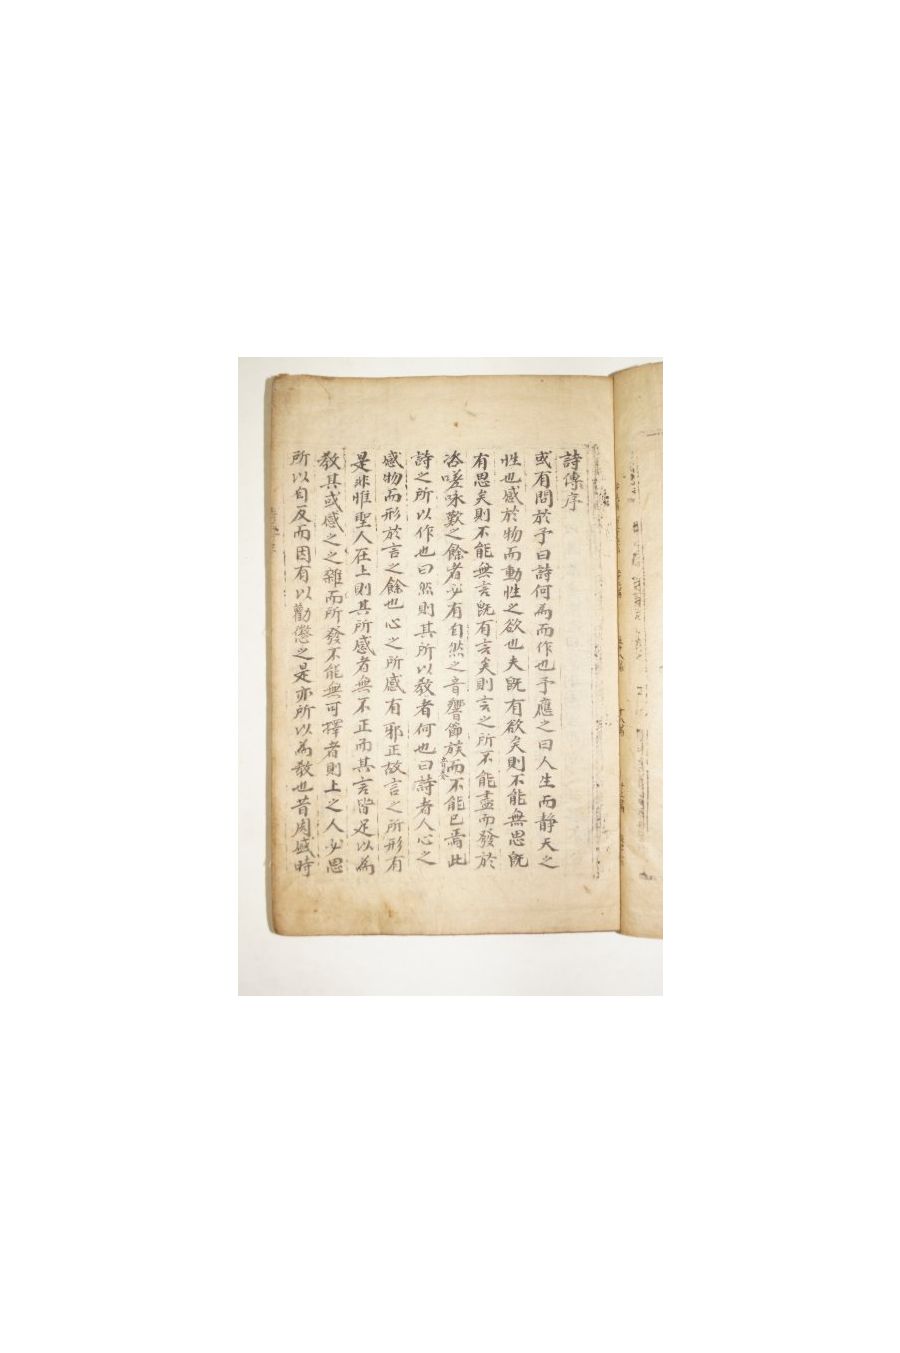 詩傳序
或有問於予曰詩何為而作也予應之曰人生而靜天之
性也感於物而動性之欲也夫旣有欲矣則不能無思旣
有思矣則不能無言旣有言矣則言之所不能盡而發於
咨嗟咏歎之餘者必有自然之音響節族而不能已焉此
詩之所以作也曰然則其所以敎者何也曰詩者人心之
感物而形於言之餘也心之所感有邪正故言之所形有
是非惟聖人在上則其所感者無不正而其言皆足以為
敎其或感之之雜而所發不能無可擇者則上之人必思
所以自反而因有以勸懲之是亦所以為敎也昔周盛時